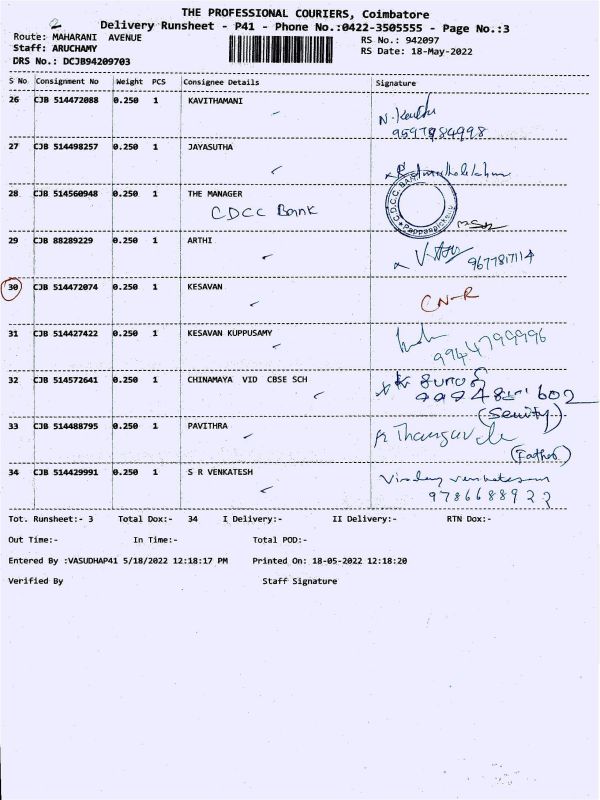 THE PROFESSIONAL COURIERS, Coimbatore
2
Delivery Runsheet - P41 - Phone No.:0422-3505555 - Page No.:3
Route: MAHARANI AVENUE
RS No.: 942097
Staff: ARUCHAMY
RS Date: 18-May-2022
DRS No.: DCJB94209703
S No Consignment No Weight PCS Consignee Details Signature
26 CJB 514472088 0.250 1 KAVITHAMANI
9597984998
27 CJB 514498257 0.250 1 JAYASUTHA
28 CJB 514560948 0.250 1 THE MANAGER
CDCC Bank
29 CJB 88289229 0.250 1 ARTHI
9677817114
30 CJB 514472074 0.250 1 KESAVAN
CN-R
31 CJB 514427422 0.250 1 KESAVAN KUPPUSAMY
9944799996
32 CJB 514572641 0.250 1 CHINAMAYA VID CBSE SCH
33 CJB 514488795 0.250 1 PAVITHRA
(Father)
34 CJB 514429991 0.250 1 S R VENKATESH
9786688922
Tot. Runsheet:- 3 Total Dox:- 34 I Delivery:- II Delivery:- RTN Dox:-
Out Time:- In Time:- Total POD:-
Entered By :VASUDHAP41 5/18/2022 12:18:17 PM Printed On: 18-05-2022 12:18:20
Verified By Staff Signature